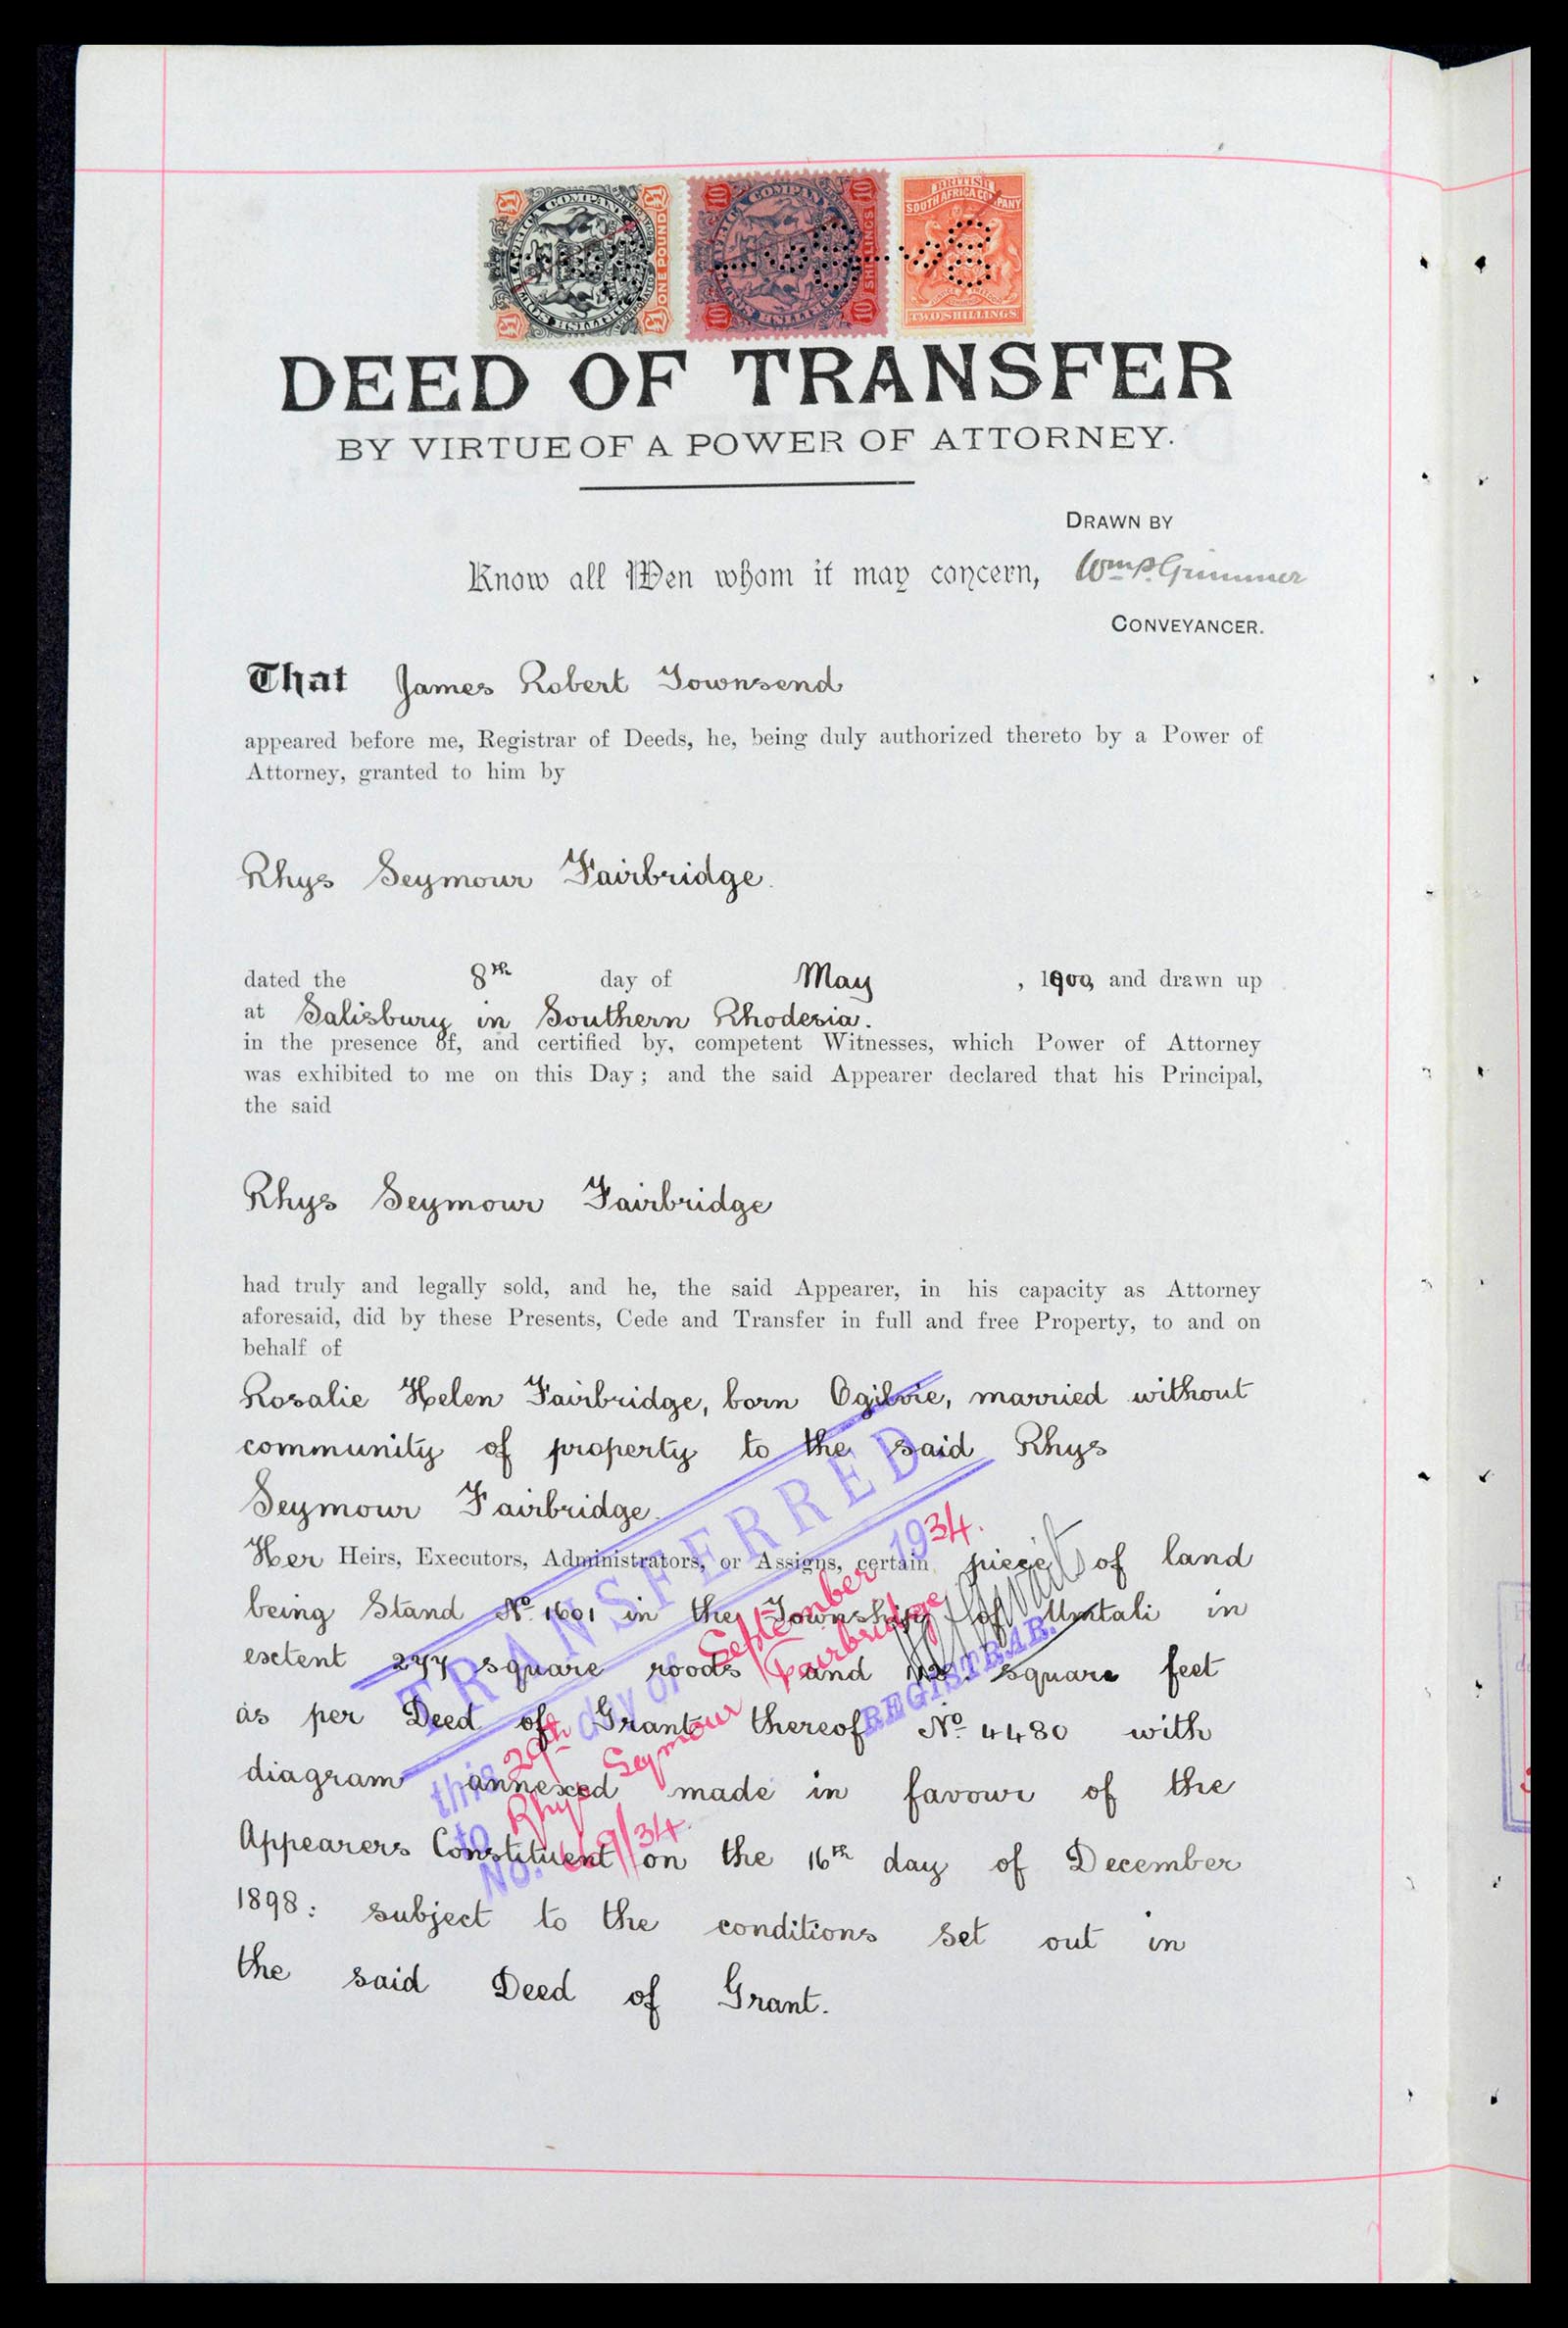 £1 £1 10 10 BRITISH
SOUTH AFRICA COMPANY
ONE POUND SHILLINGS
£1 £1 10 10 TWO SHILLINGS
DEED OF TRANSFER
BY VIRTUE OF A POWER OF ATTORNEY.
DRAWN BY
Know all Men whom it may concern, Wm. P. Grimmer
CONVEYANCER.
That James Robert Townsend
appeared before me, Registrar of Deeds, he, being duly authorized thereto by a Power of
Attorney, granted to him by
Rhys Seymour Fairbridge.
dated the 8th day of May , 1900, and drawn up
at Salisbury in Southern Rhodesia.
in the presence of, and certified by, competent Witnesses, which Power of Attorney
was exhibited to me on this Day; and the said Appearer declared that his Principal,
the said
Rhys Seymour Fairbridge
had truly and legally sold, and he, the said Appearer, in his capacity as Attorney
aforesaid, did by these Presents, Cede and Transfer in full and free Property, to and on
behalf of
Rosalie Helen Fairbridge, born Ogilvie, married without
community of property to the said Rhys
Seymour Fairbridge.
Her Heirs, Executors, Administrators, or Assigns, certain piece of land
being Stand No. 1601 in the Township of Umtali in
extent 277 square roods and square feet
as per Deed of Grant thereof No. 4480 with
diagram annexed made in favour of the
Appearers Constituent on the 16th day of December
1898: subject to the conditions set out in
the said Deed of Grant.
TRANSFERRED
this 29th day of September 1934.
to Rhys Seymour Fairbridge
No. /34.
REGISTRAR.